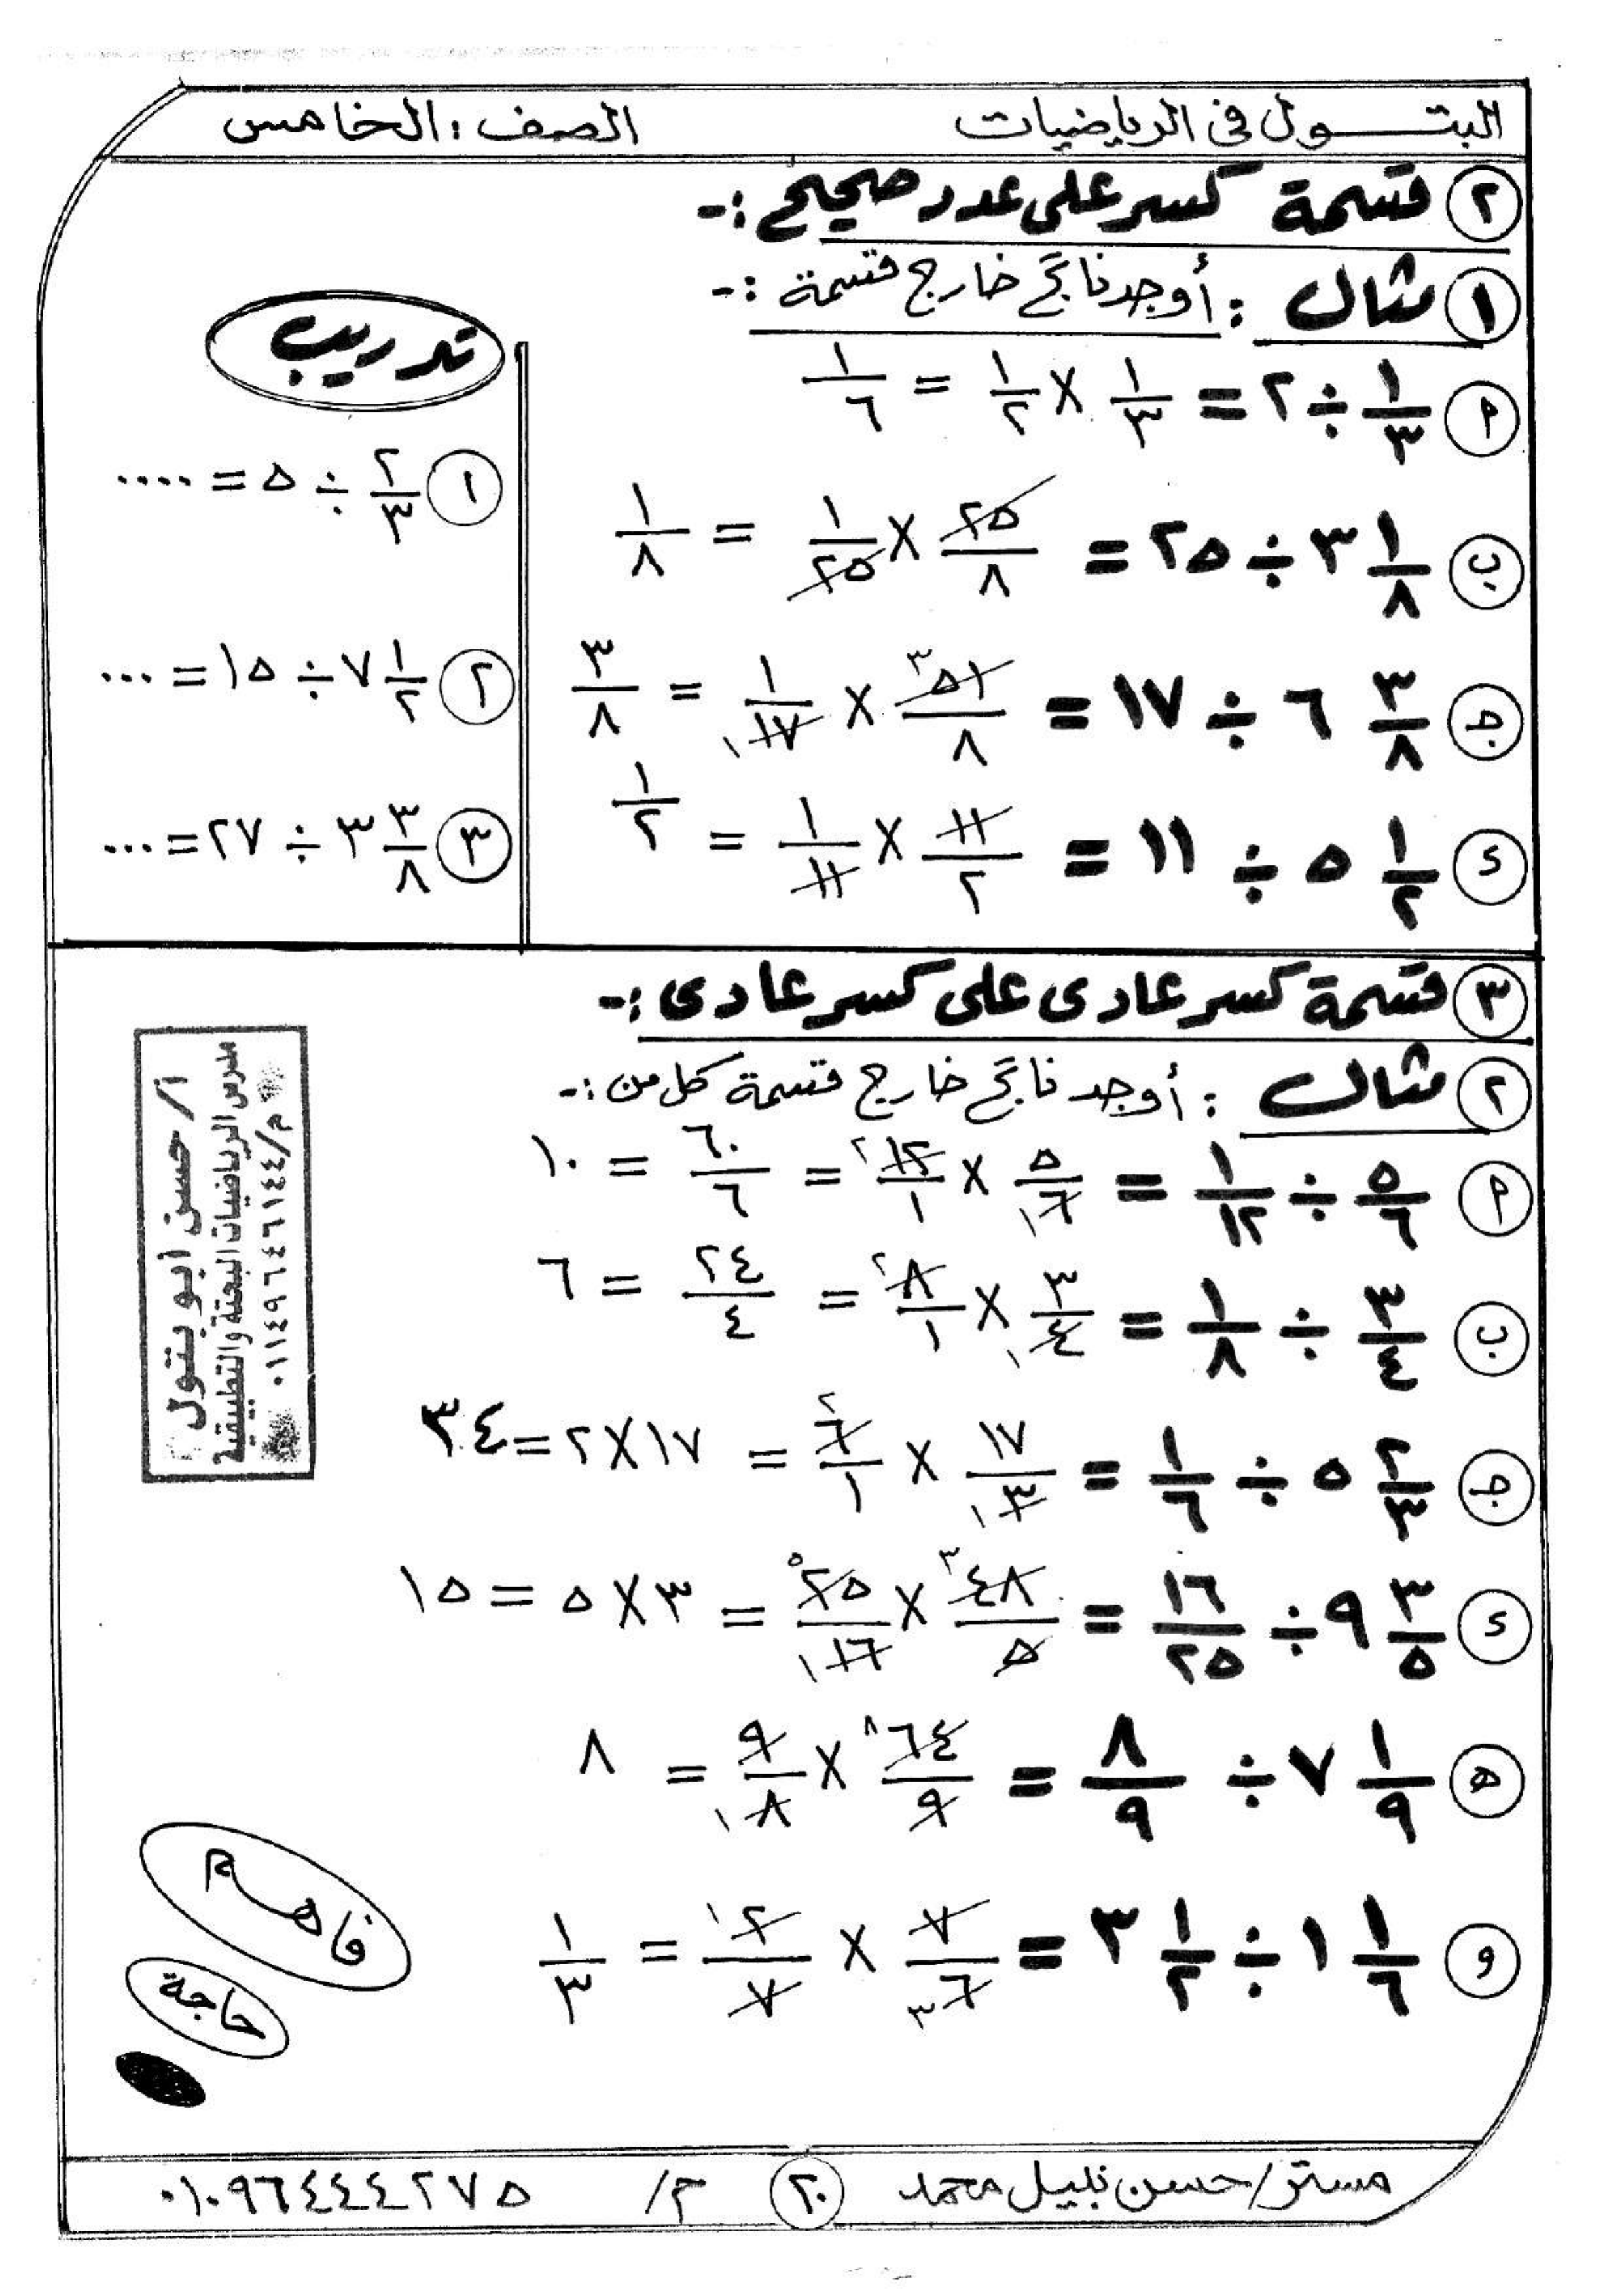 البتـــول فى الرياضيات
الصف : الخامس
٢ قسمة كسر على عدد صحيح :-
١ مثال : أوجد ناتج خارج قسمة :-
أ ١/٣ ÷ ٢ = ١/٣ × ١/٢ = ١/٦
ب ٣ ١/٨ ÷ ٢٥ = ٢٥/٨ × ١/٢٥ = ١/٨
جـ ٦ ٣/٨ ÷ ١٧ = ٥١/٨ × ١/١٧ = ٣/٨
د ٥ ١/٢ ÷ ١١ = ١١/٢ × ١/١١ = ١/٢
تدريب
١ ٢/٣ ÷ ٥ = ....
٢ ٧ ١/٢ ÷ ١٥ = ...
٣ ٣ ٣/٨ ÷ ٢٧ = ...
٣ قسمة كسر عادى على كسر عادى :-
٢ مثال : أوجد ناتج خارج قسمة كل من :-
أ ٥/٦ ÷ ١/١٢ = ٥/٦ × ١٢/١ = ٦٠/٦ = ١٠
ب ٣/٤ ÷ ١/٨ = ٣/٤ × ٨/١ = ٢٤/٤ = ٦
جـ ٥ ٢/٣ ÷ ١/٦ = ١٧/٣ × ٦/١ = ١٧ × ٢ = ٣٤
د ٩ ٣/٥ ÷ ١٦/٢٥ = ٤٨/٥ × ٢٥/١٦ = ٣ × ٥ = ١٥
هـ ٧ ١/٩ ÷ ٨/٩ = ٦٤/٩ × ٩/٨ = ٨
و ١ ١/٦ ÷ ٣ ١/٢ = ٧/٦ × ٢/٧ = ١/٣
أ/ حسن ابو بتول
مدرس الرياضيات البحتة والتطبيقية
م/ ٠١١٤٩٦٤٦١٤٤
فاهم
حاجة
مستر/ حسن نبيل محمد
٢٠
م/ ٠١٠٩٦٤٤٤٢٧٥